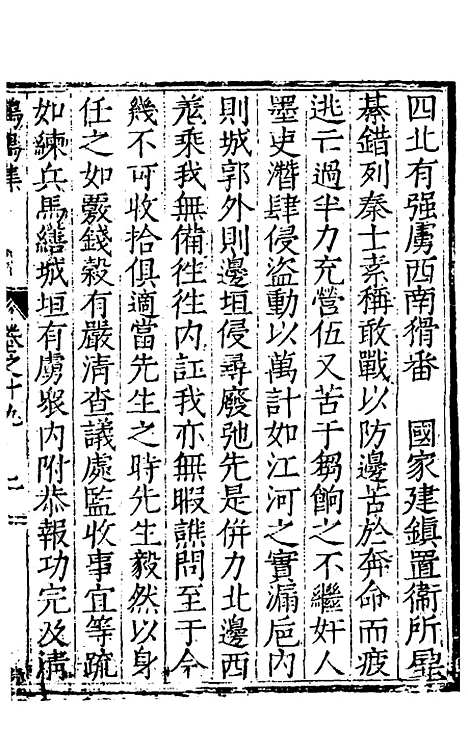 四北有强虜西南猾番　國家建鎮置衞所星
碁錯列秦士素稱敢戰以防邊苦於奔命而疲
逃亡過半力充營伍又苦于芻餉之不繼奸人
墨吏潛肆侵盜動以萬計如江河之實漏巵内
則城郭外則邊垣侵尋廢弛先是併力北邊西
羌乘我無備徃徃内訌我亦無暇譙問至于今
幾不可收拾俱適當先生之時先生毅然以身
任之如覈錢穀有嚴清查議處監收事宜等疏
如練兵馬繕城垣有虜衆内附恭報功完及溝
卷之十九　二